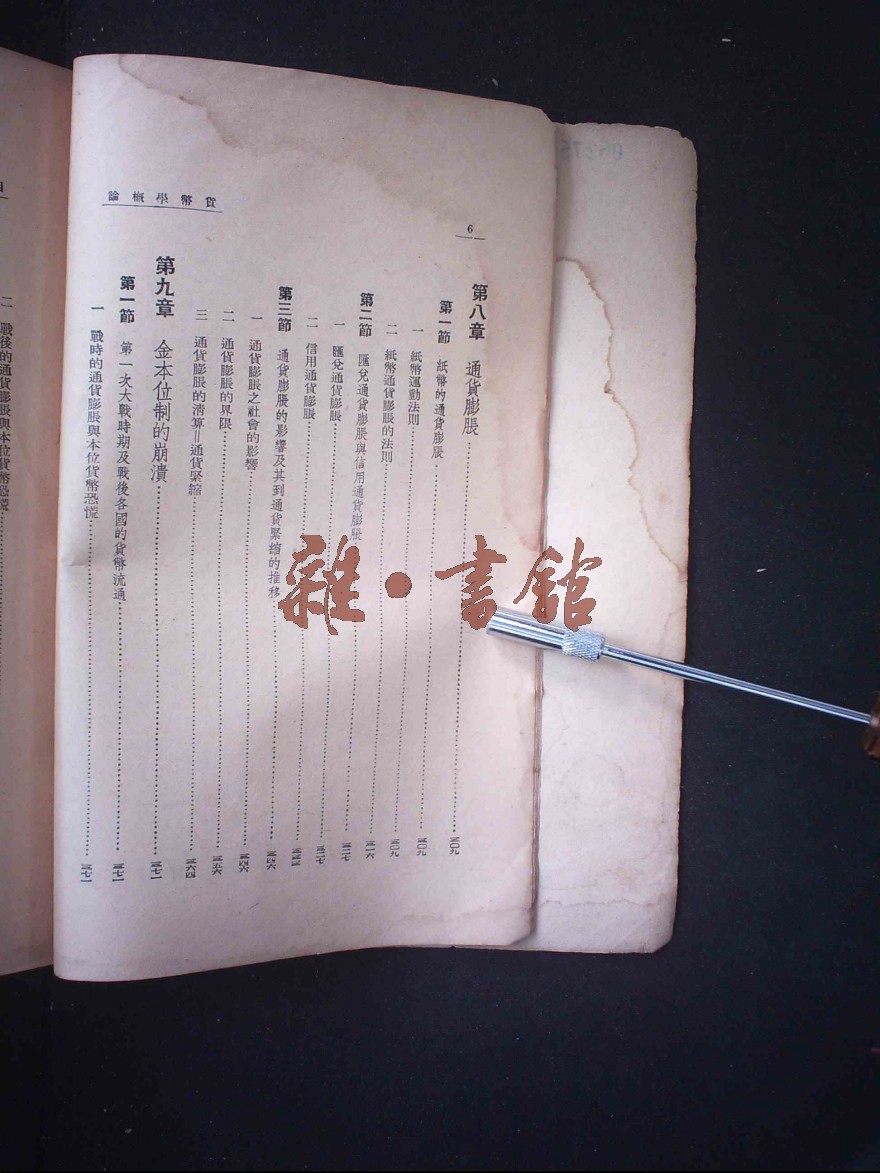 論概學幣貨
6
第八章 通貨膨脹 三〇九
第一節 紙幣的通貨膨脹 三〇九
一 紙幣運動法則 三〇九
二 紙幣通貨膨脹的法則 三一六
第二節 匯兌通貨膨脹與信用通貨膨脹 三二七
一 匯兌通貨膨脹 三二七
二 信用通貨膨脹 三三三
第三節 通貨膨脹的影響及其到通貨緊縮的推移 三四六
一 通貨膨脹之社會的影響 三四六
二 通貨膨脹的界限 三五六
三 通貨膨脹的清算＝通貨緊縮 三六四
第九章 金本位制的崩潰 三七一
第一節 第一次大戰時期及戰後各國的貨幣流通 三七一
一 戰時的通貨膨脹與本位貨幣恐慌 三七一
二 戰後的通貨膨脹與本位貨幣恐慌
雜·書館